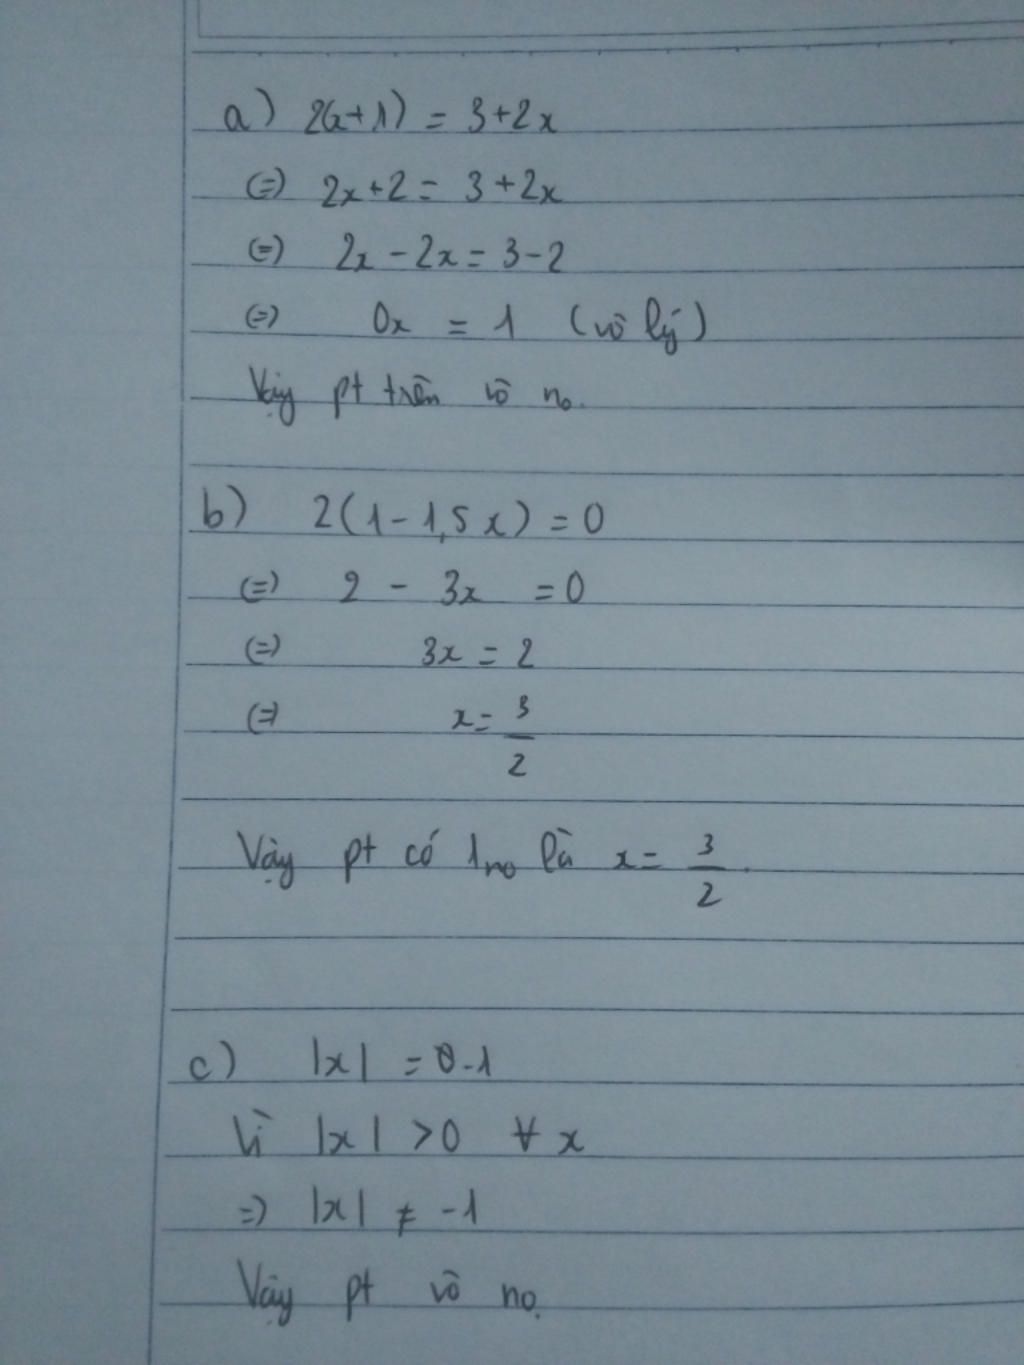 a) 2(x+1) = 3+2x
(=) 2x+2 = 3+2x
(=) 2x - 2x = 3-2
(=) 0x = 1 (vô lý)
Vậy pt trên vô no.
b) 2(1-1,5x) = 0
(=) 2 - 3x = 0
(=) 3x = 2
(=) x = 3/2
Vậy pt có 1 no là x = 3/2.
c) |x| = -1
Vì |x| > 0 ∀ x
=) |x| ≠ -1
Vậy pt vô no.